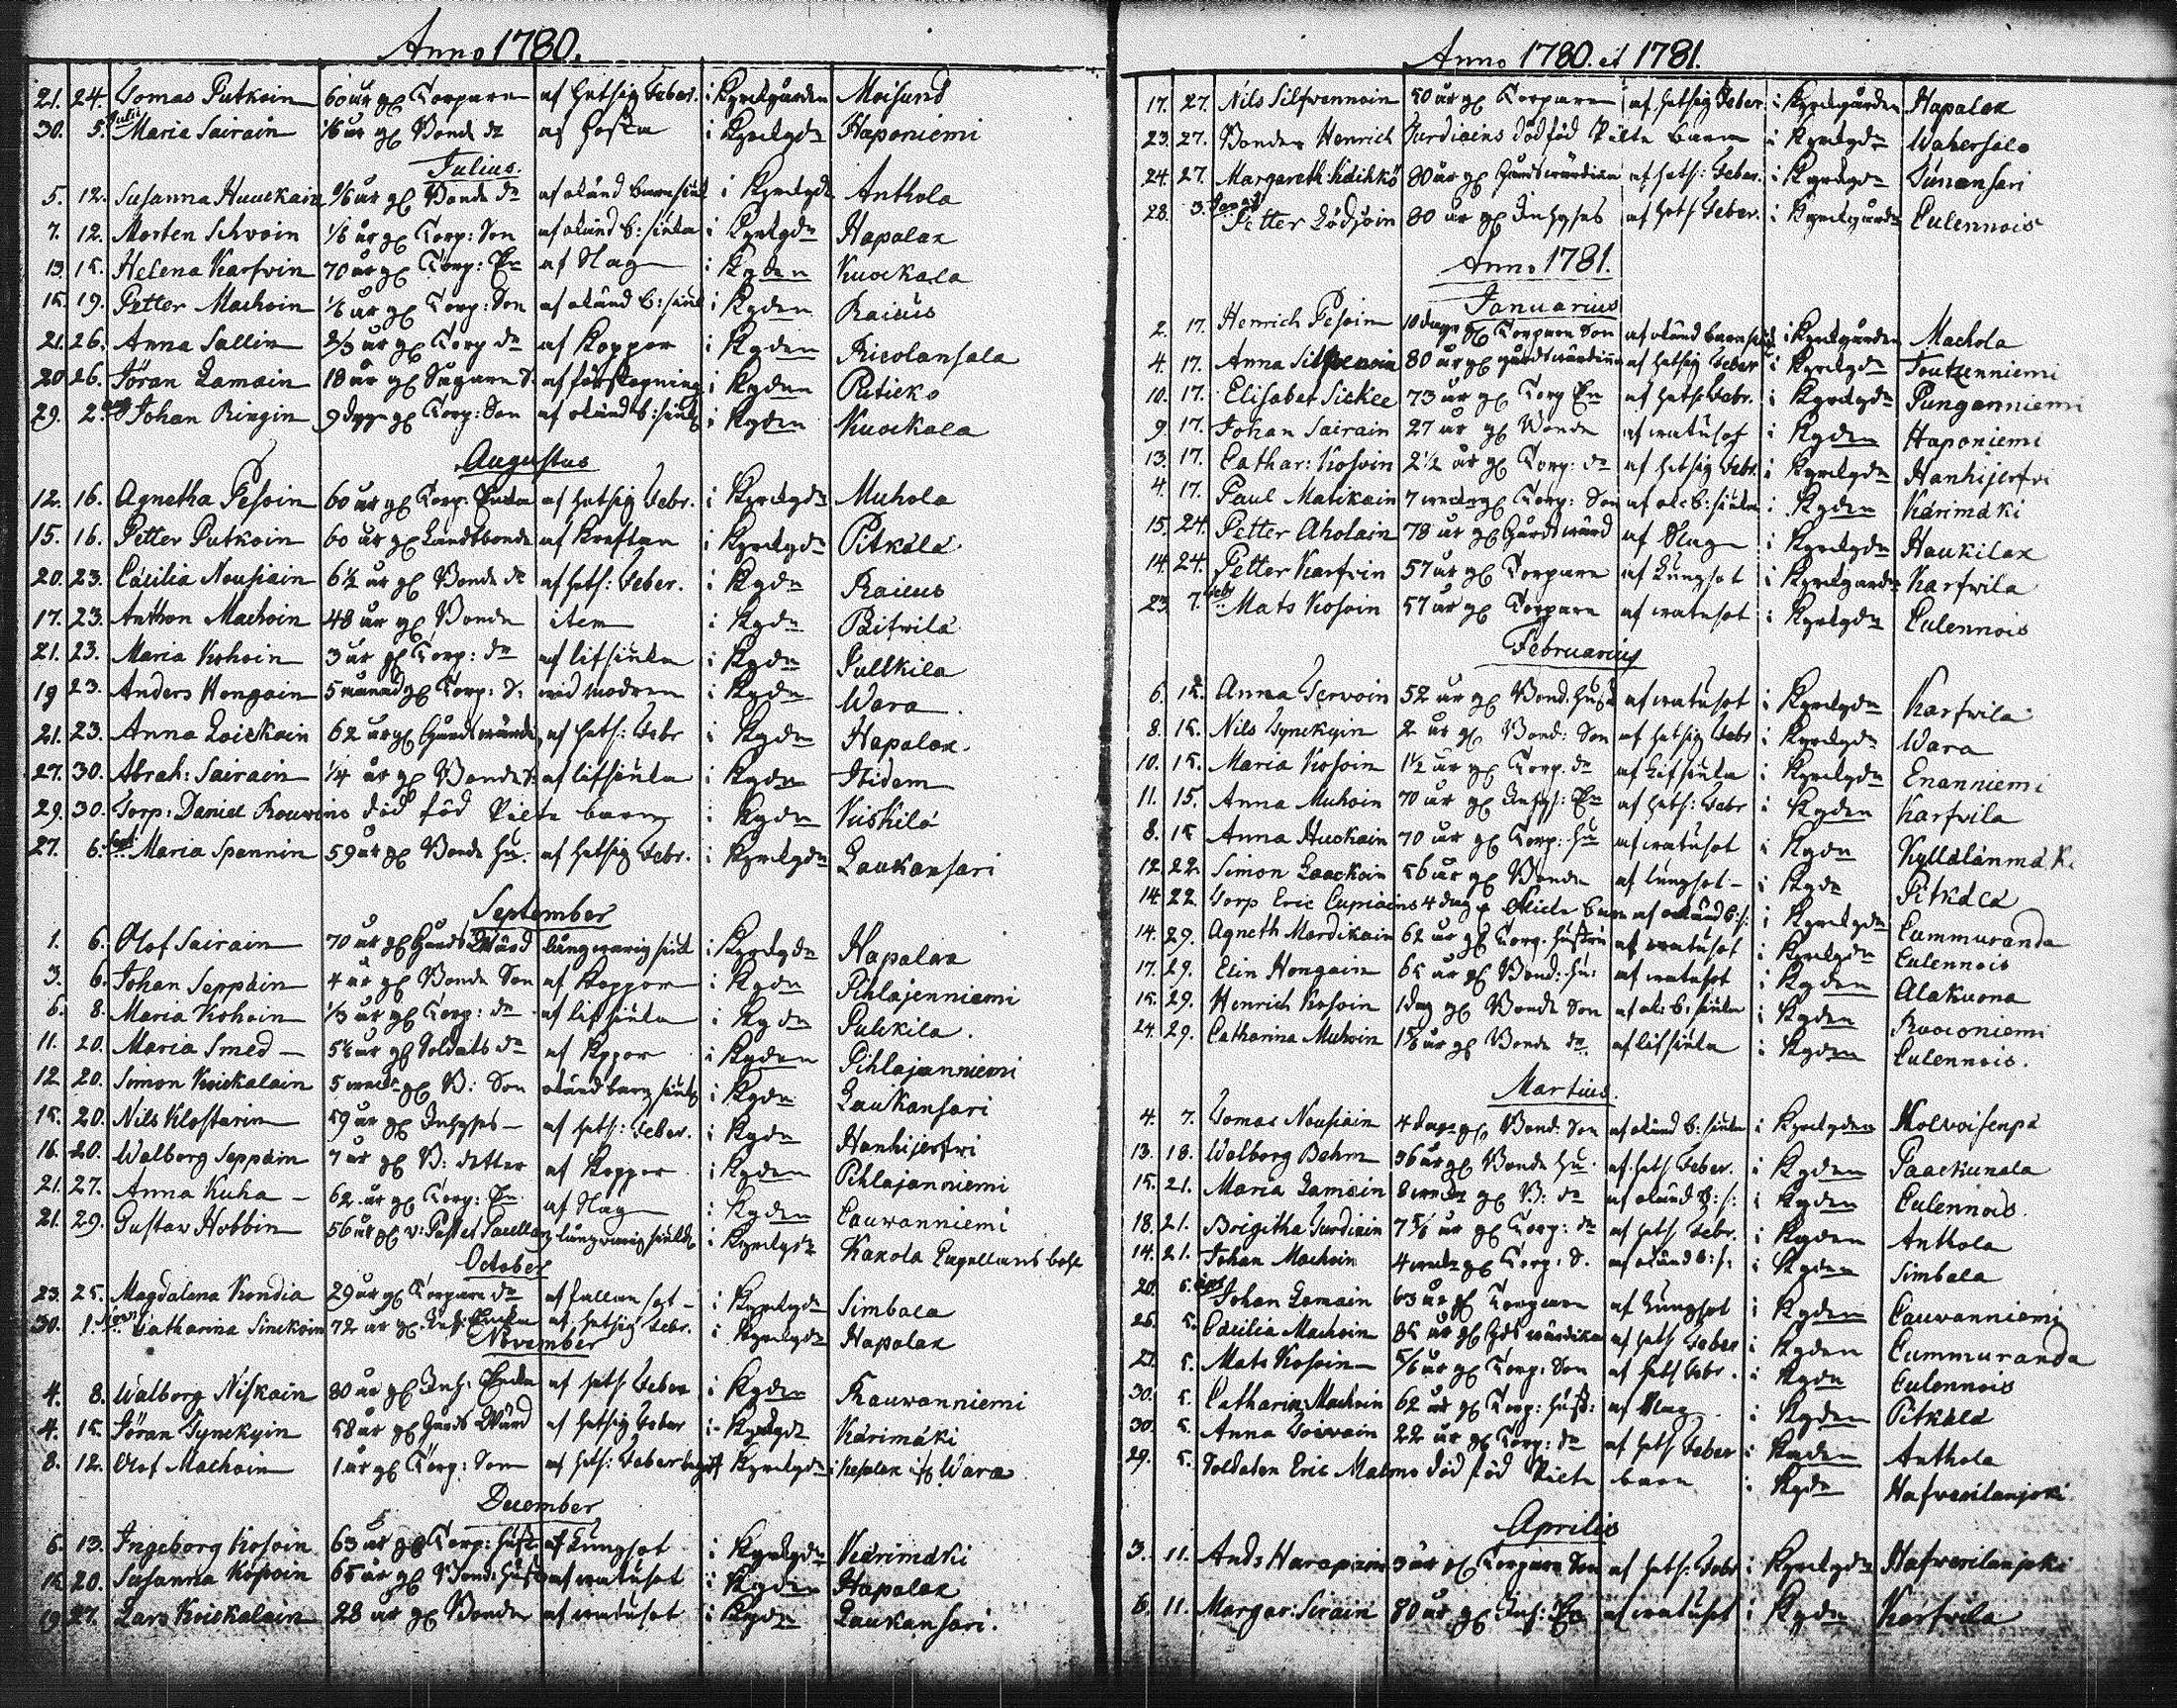 Anno 1780.
21. 24. Tomas Putkoin 60 år gl Torpare af hetsig Feber. i Kyrckgården Moisund
30. 5. Julii Maria Sairain 1/6 år gl Bonde dr af hosta i Kyrckgdn Haponiemi
Julius.
5. 12. Susanna Huuckain 9/6 år gl Bonde dr af okänd barnsiuk i Kyrckgdn Anthola
7. 12. Morten Schvoin 1/6 år gl Torp: Son af okänd b: siuka i Kyrckgdn Hapalax
13. 15. Helena Karfvin 70 år gl Torp: En af Slag i Kgden Kuockala
15. 19. Petter Machoin 1/6 år gl Torp: Son af okänd b: siuk i Kgden Raicus
21. 26. Anna Sallin 2/3 år gl Torp dr af Koppor i Kgden Ricolansala
20 26. Jöran Lamain 18 år gl Sågare S. af förstopning i Kgden Puticko
29. 2. aug Johan Ringin 9 dygn gl Torp: Son af okänd b: siuk i Kgden Kuockala
Augustus
12. 16. Agnetha Pesoin 60 år gl Torp: Enka af hetsig Febr. i Kyrckgdn Muhola
15. 16. Petter Putkoin 60 år gl Landtbonde af Kräftan i Kyrckgdn Pitkälä
20. 23. Cäcilia Nousiain 6 1/2 år gl Bonde dr af hets: Feber. i Kgdn Raicus
17. 23. Anthon Machoin 48 år gl Bonde item i Kgdn Päifvilä
21. 23. Maria Kohoin 3 år gl Torp: dr af lifsiuka i Kgdn Pullkila
19 23. Anders Hongain 5 månad gl Torp: S. wid modren i Kgdn Wara
21. 23. Anna Loickain 62 år gl Gårdtwärdi af hets: Febr i Kgdn Hapalax.
27. 30. Abrah: Sairain 1/4 år gl Bonde S: af lifsiuka i Kgdn Ibidem
29. 30. Torp: Daniel Rouvoins död föd Pilte barn i Kgdn Kiiskilä
27. 6. Sept Maria Spennin 59 år gl Bonde hu. af hetsig Febr. i Kyrckgdn Laukansari
September
1. 6. Olof Sairain 70 år gl Gårds Wärd långwarig siuk i Kyrckgdn Hapalax
3. 6. Johan Seppäin 4 år gl Bonde Son af Koppor i Kgdn Pihlajenniemi
6. 8. Maria Kohoin 1/3 år gl Torp: dr af lifsiuka i Kgdn Pulckila.
11. 20. Maria Smed 5 1/2 år gl Soldats dr af Kopor i Kgden Pihlajanniemi
12 20. Simon Koickalain 5 weck: gl B: Son okänd barnsiuk i Kgdn Laukansari
15. 20. Nils Klosterin 59 år gl Inhyses af hets: Feber. i Kgdn Hanhijerfwi
16. 20. Walborg Seppäin 7 år gl B: dotter af Koppor i Kgden Pihlajanniemi
21. 27. Anna Kuha 62 år gl Torp: En. af Slag i Kgden Cauwanniemi
21. 29. Gustav Hobbin 56 år gl långwarig siukd i Kyrckgdn Kakola
October
23. 25. Magdalena Kondia 29 år gl Torpare dr af fallan sot i Kyrckgdn Simbala
30. 1. Nov. Catharina Sinckoin 72 år gl Inh: Enka af hetsig Febr. i Kyrckgdn Hapalax
November
4. 8. Walborg Niskain 80 år gl Inh: Enka af hets: Feber i Kgden Rauwanniemi
4. 15. Jöran Tynckyin 58 år gl Gårds Wärd af hetsig Feber i Kyrckgdn Kärimäki
8. 12. Olof Machoin 1 år gl Torp: Son af hets: Feber i Kyrckgdn Wara
December
6. 13. Ingeborg Kosoin 63 år gl Torp: hust: af Lungsot i Kyrckgdn Kärimäki
15 20. Susanna Kosoin 65 år gl Bond: hust af watusot i Kgden Hapalax
19 27. Lars Koickalain 28 år gl Bonde af watusot i Kgdn Laukansari.
Anno 1780. et 1781.
17. 27. Nils Silfwennoin 50 år gl Torpare af hetsig Feber i Kyrckgården Hapalax
23. 27. Bonden Henrich Turdiains dödföd Pilte barn i Kyrckgdn Wahersalo
24. 27. Margareth: Käihkö 80 år gl Gårdtwärdina af hets: Feber. i Kyrckgdn Simansari
28. 3. Petter Lödjöin 80 år gl Inhyses af hets: Feber. i Kyrckgårdn Culennois
Anno 1781.
Januarius
2. 17. Henrich Pesoin 10 dagr gl Torpare Son af okänd barnsiuk i Kyrckgården Machola
4. 17. Anna Silfvenoin 80 år gl gårdtwärdinna af hetsig Feber i Kyrckgdn Toutzenniemi
10. 17. Elisabet Sickee 73 år gl Torp En af hets: Febr. i Kyrckgdn Punganniemi
9. 17. Johan Sairain 27 år gl Bonde af watusot i Kgden Haponiemi
13. 17. Cathar: Kosoin 2 1/2 år gl Torp: dr af hetsig Febr. i Kyrckgdn Hanhijerfvi
4. 17. Paul Matikain 7 weckr gl Torp: Son af ok: b: siuka i Kgden Kärimäki
15. 24. Petter Aholain 78 år gl Gårdtwärd af Slag i Kyrckgdn Haukilax
14 24. Petter Karfvin 57 år gl Torpare af Lungsot i Kyrckgårdn Karfwila
23. 7. Febr Mats Kosoin 57 år gl Torpare af watusot i Kyrckgdn Culennois
Februarius
6. 15. Anna Terwoin 52 år gl Bond. hust af watusot i Kyrckgdn Karfwila
8. 15. Nils Tynckyin 2 år gl Bond: Son af hetsig Febr i Kyrckgdn Wara
10. 15. Maria Kosoin 1 1/2 år gl Torp. dr af Lifsiuka i Kyrckgdn Enanniemi
11. 15. Anna Muhoin 70 år gl Inhys: En af hets: Febr i Kgden Karfwila
8. 15 Anna Huckain 70 år gl Torp: hu af watusot i Kgdn Kyllälänmäki
12. 22. Simon Laackoin 56 år gl Bonde af lungsot i Kgdn Pitkälä
14 22 Torp Eric Cupiains 4 dag Flicke barn af okänd b: s: i Kyrckgdn Cummuranda
14. 29. Agneth Mardikain 62 år gl Torp. hustru af watusot i Kyrckgdn Culennois
17. 29. Elin Hongain 65 år gl Bond: hu: af watusot i Kgden Alakuona
15. 29. Henrich Kosoin 1 dag gl Bonde Son af ok: b: siuka i Kgden Ruoconiemi
24. 29. Catharina Muhoin år gl Bonde dr af lifsiuka i Kgden Culennois.
Martius.
4. 7. Tomas Nousiain 4 dagr gl Bond: Son af okänd b: siuka i Kyrckgden Kolwoisenpä
13. 18. Walborg Behm 36 år gl Bonde hu. af hets: Feber. i Kgden Paackunala
15. 21. Maria Lamain 8 weckr gl B: dr af okänd B: s: i Kgden Culennois.
18. 21. Brigitha Turdiain 7 5/6 år gl Torp: dr af hets: Febr. i Kgden Anthola
14. 21. Johan Machoin 4 weckr gl Torp: S. af okänd b: s: i Kgden Simbala
20. 5. apr Johan Lamain 63 år gl Torpare af Lungsot i Kgden Cauvanniemi
26. 5. Cäcilia Machoin 85 år gl Gdtwärdina af hets: Feber i Kgden Cummuranda
27. 5. Mats Kosoin 5/6 år gl Torp: Son af hets: Febr. i Kgdn Culennois
30. 5. Catharin: Machoin 62 år gl Torp: hust: af Slag i Kgden Pitkälä
30. 5. Anna Toivain 22 år gl Torp: dr af hets: Feber i Kgden Anthola
29. 5. Soldaten Eric Malms död föd Pilte barn i Kgdn Hafverilanjoki
Aprilis
3. 11. Ands Harapain 3 år gl Torpare Son af hets: Febr i Kyrckgdn Hafwerilanjoki
6. 11. Margar: Sirain 80 år gl Inh: En af watusot i Kgdn Karfwila